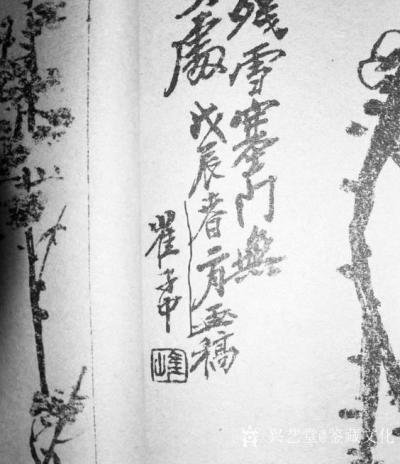 殘雪門無
處 戊辰春二月画稿
崔子中
兴艺堂@鉴藏文化